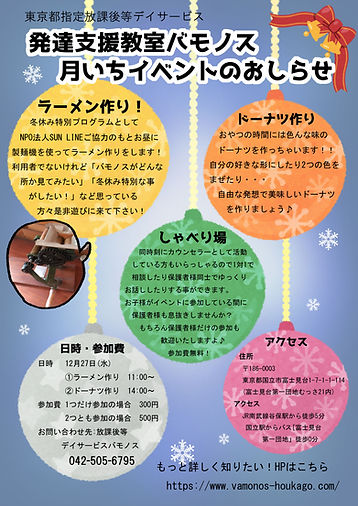 東京都指定放課後等デイサービス
発達支援教室バモノス
月いちイベントのおしらせ
ラーメン作り！
冬休み特別プログラムとして
NPO法人SUN LINEご協力のもとお昼に
製麺機を使ってラーメン作りをします！
利用者でないけれど「バモノスがどんな
所か見てみたい」「冬休み特別な事
がしたい！」など思っている
方々是非遊びに来て下さい！
ドーナツ作り
おやつの時間には色んな味の
ドーナツを作っちゃいます！！
自分の好きな形にしたり2つの色を
まぜたり・・・
自由な発想で美味しいドーナツ
を作りましょう♪
しゃべり場
同時刻にカウンセラーとして活動
している方もいらっしゃるので1対1で
相談したり保護者様同士でゆっくり
お話ししたりする事ができます。
お子様がイベントに参加している間に
保護者様も息抜きしませんか？
もちろん保護者様だけの参加も
歓迎いたしますよ♪
参加費無料！
日時・参加費
日時 12月27日(水)
①ラーメン作り 11:00～
②ドーナツ作り 14:00～
参加費 1つだけ参加の場合 300円
2つとも参加の場合 500円
お問い合わせ先:放課後等
デイサービスバモノス
042-505-6795
アクセス
住所
〒186-0003
東京都国立市富士見台1-7-1-1-114
(富士見台第一団地むっさ21内)
アクセス
JR南武線谷保駅から徒歩5分
国立駅からバス「富士見台
第一団地」徒歩0分
もっと詳しく知りたい！HPはこちら
https://www.vamonos-houkago.com/